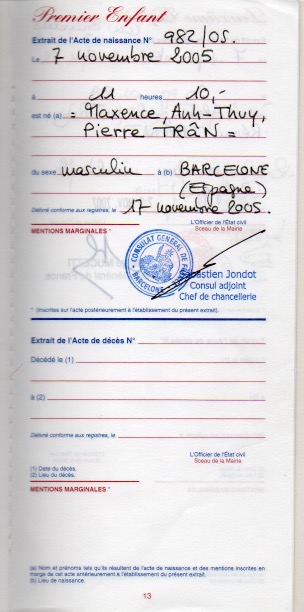 Premier Enfant
Extrait de l'Acte de naissance N° 982/05.
Le 7 novembre 2005
à 11 heures 10,-
est né (a) = Maxence, Anh-Thuy,
Pierre TRÂN =
du sexe masculin à (b) BARCELONE
(Espagne)
Délivré conforme aux registres, le 17 novembre 2005.
L'Officier de l'État civil
Sceau de la Mairie
MENTIONS MARGINALES *
CONSULAT GÉNÉRAL DE
BARCELONE
Sébastien Jondot
Consul adjoint
Chef de chancellerie
* (Inscrites sur l'acte postérieurement à l'établissement du présent extrait).
Extrait de l'Acte de décès N°
Décédé le (1)
à (2)
Délivré conforme aux registres, le
L'Officier de l'État civil
Sceau de la Mairie
(1) Date du décès.
(2) Lieu du décès.
MENTIONS MARGINALES *
(a) Nom et prénoms tels qu'ils résultent de l'acte de naissance et des mentions inscrites en
marge de cet acte antérieurement à l'établissement du présent extrait.
(b) Lieu de naissance.
13